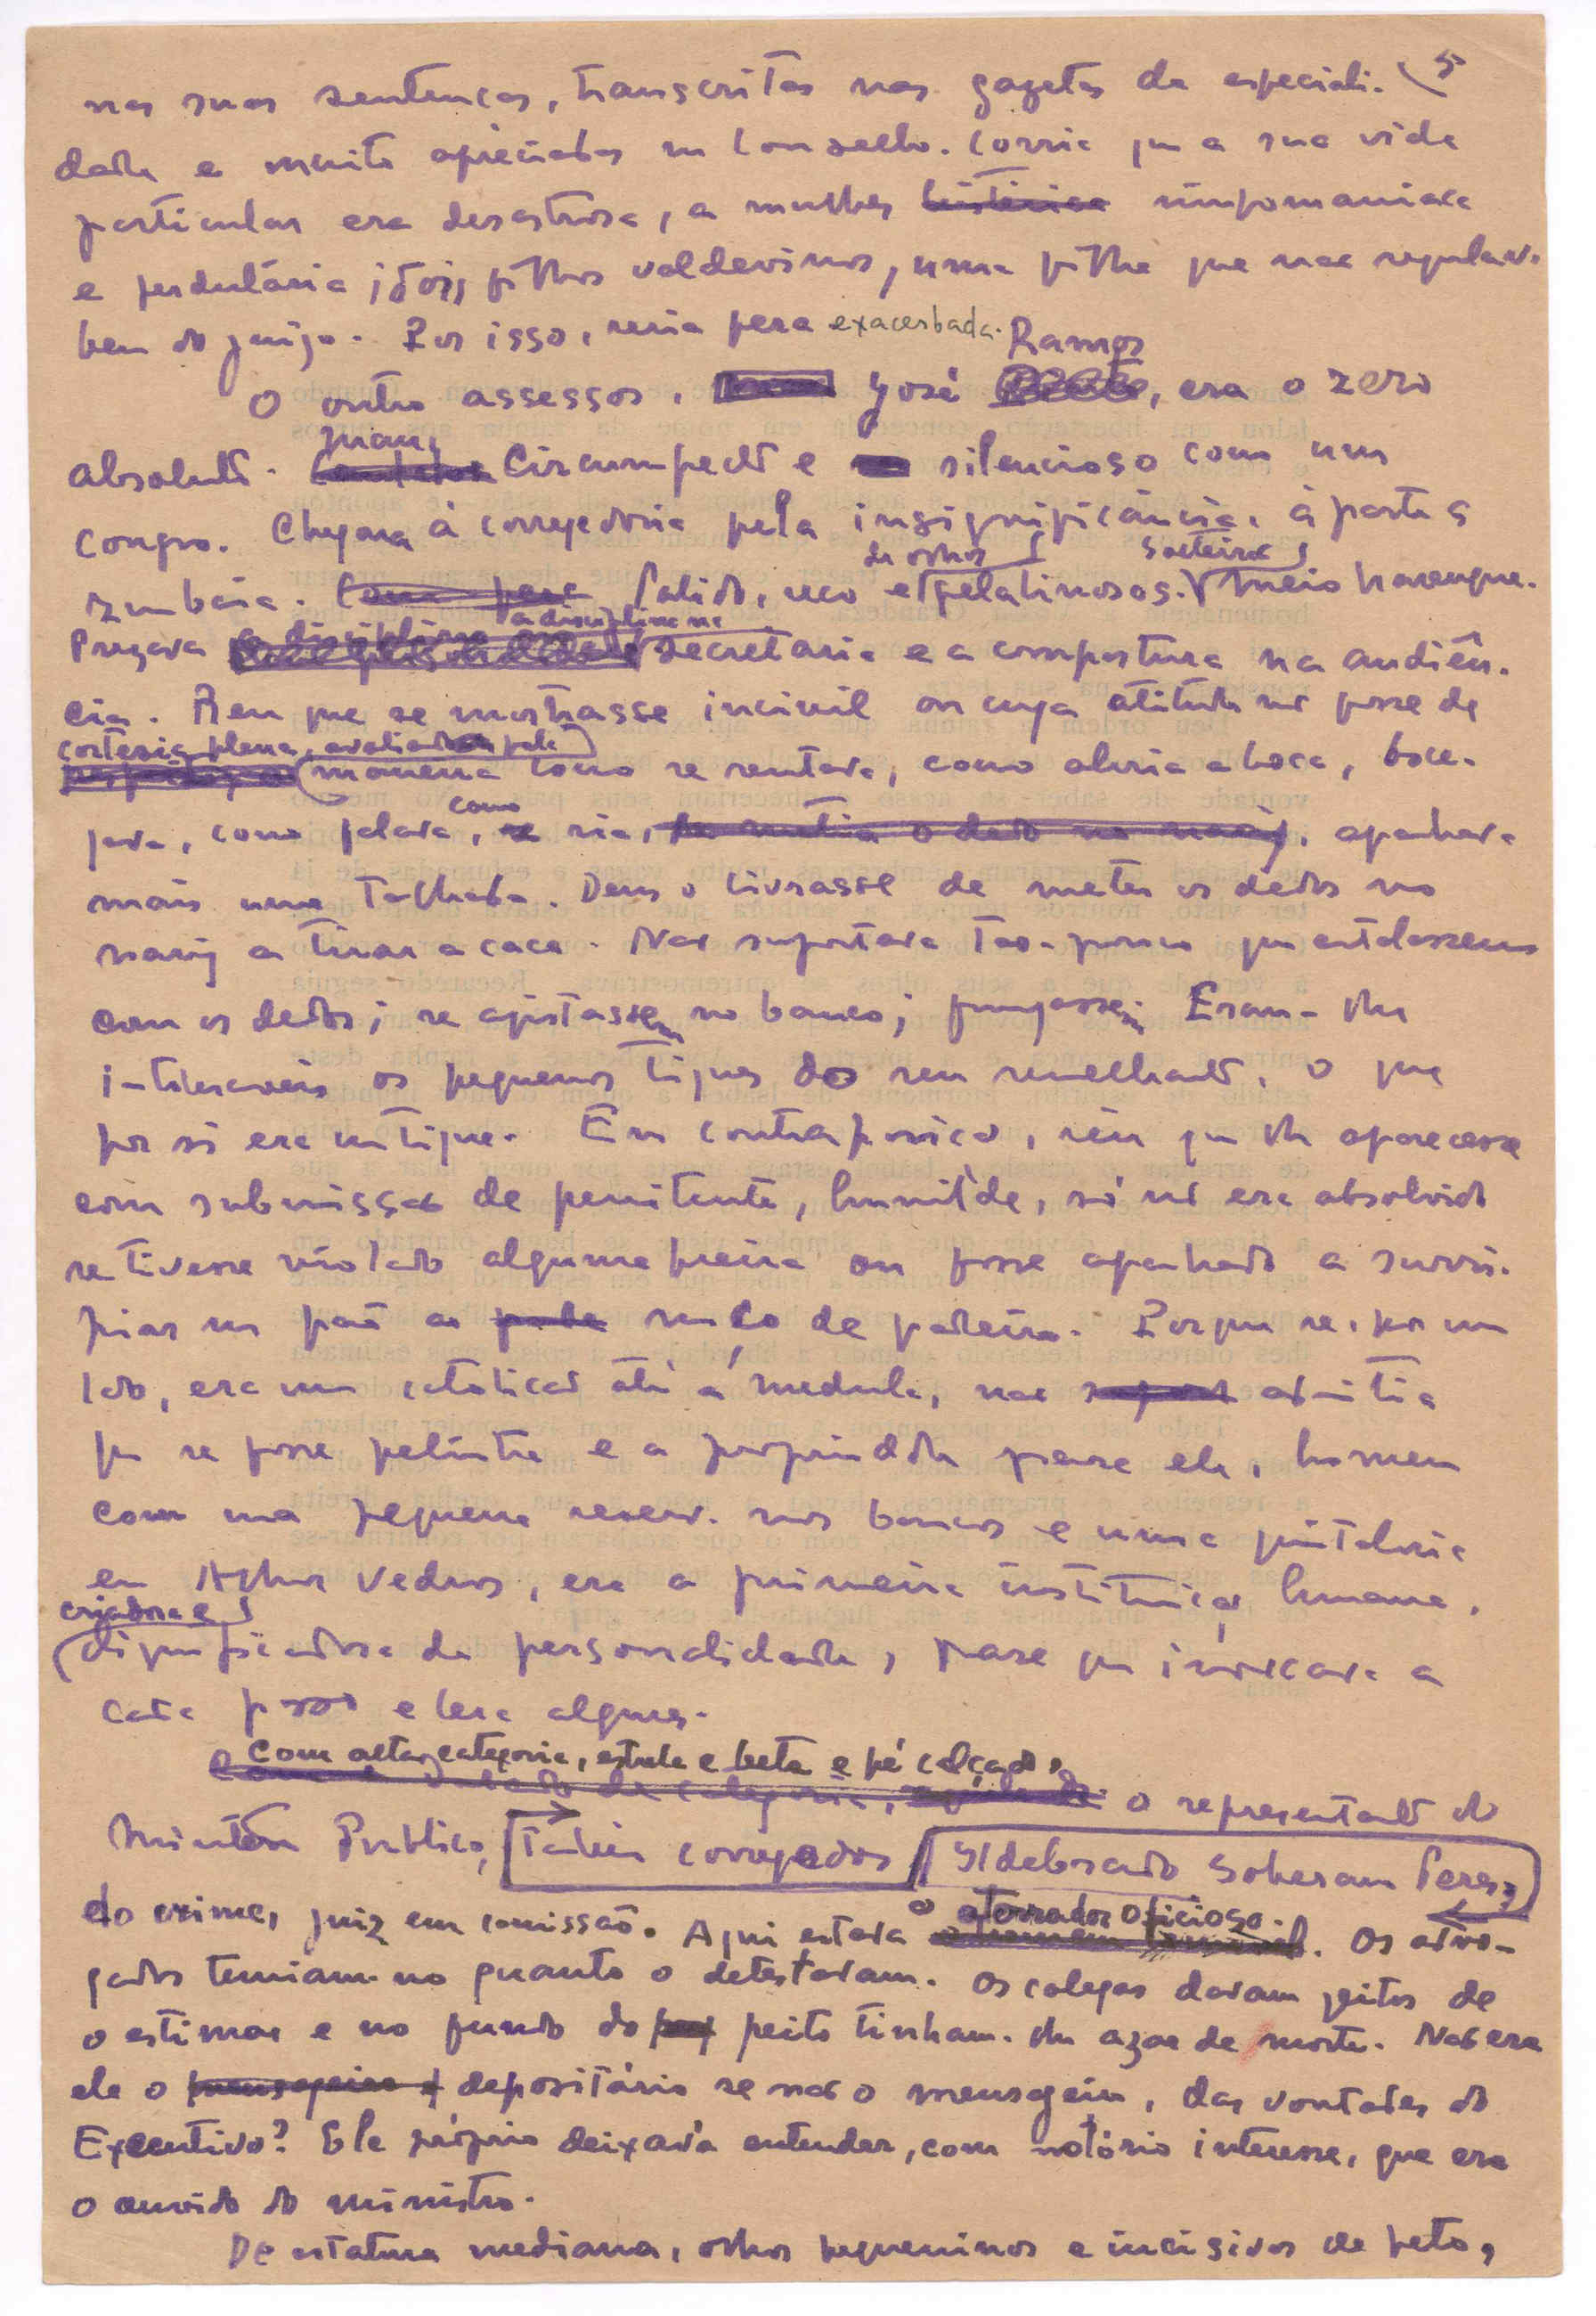 5
nas suas sentenças, transcritas nas gazetas da especiali-
dade e muito apreciadas no Conselho. Corria que a sua vida
particular era desastrosa, a mulher histérica ninfomaníaca
e perdulária; dois filhos valdevinos, uma filha que não regulava
bem do juizo. Por isso, seria fera exacerbada.
Ramos
O outro assessor, José, era o zero
absoluto. Mano, Circumspecto e silencioso com um
congro. Chegara à corregedoria pela insignificância, à parte a
de olhos solteiro
zumbaia. Como Pálido, seco e gelatinosos. meio harengue.
a disciplina na
Prezava secretaria e a compostura na audiên-
cia. Reu que se mostrasse incivil ou cuja atitude não fosse de
cortesia plena, avaliada pela
maneira como se sentava, como abria a boca, boce-
como
java, como falava, se ria, ou metia o dedo no nariz, apanhava
mais uma talhada. Deus o livrasse de meter os dedos no
nariz a tirar a caca. Não suportava tão-pouco que estalassem
com os dedos; se agitassem no banco; fungassem. Eram-lhe
intoleraveis os pequenos tiques do seu semelhante, o que
por si era um tique. Em contraposição, réu que lhe aparecesse
com submissão de penitente, humilde, só não era absolvido
se tivesse violado alguma freira ou fosse apanhado a surri-
piar um pão ao moço de padeiro. Porque se, por um
lado, era um católicão até à medula, não admitia
que se fosse pelintra e a propriedade para ele, homem
com uma pequena reserva nos bancos e uma quintalória
em Alhos Vedros, era a primeira instituição humana,
criadora e
dignificadora da personalidade, frase que invocava a
cada passo e lera algures.
Com alta categoria, estrela e beta e pé calçado,
o representante do
Ministério Publico, também corregedor Ildebrando Soberam Peres,
o aterrador oficioso.
do crime, juiz em comissão. Aqui estava o homem temível. Os advo-
gados temiam-no quanto o detestavam. Os colegas davam jeitos de
o estimar e no fundo do peito tinham-lhe azar de morte. Não era
ele o mensageiro depositário se não o mensageiro, das vontades do
Executivo? Ele próprio deixava entender, com notório interesse, que era
o ouvido do ministro.
De estatura mediana, olhos pequeninos e incisivos de peto,